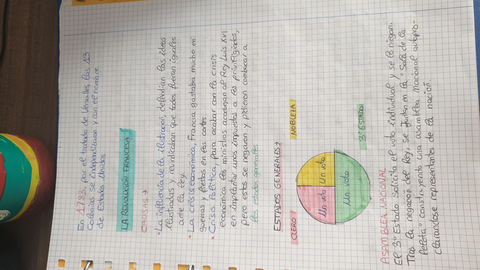 En 1783, por el tratado de Versalles, las 13
Colonias se independizaron con el nombre
de Estados Unidos.
LA REVOLUCIÓN FRANCESA
CAUSAS →
• La influencia de la Ilustración, defendían las ideas
ilustradas y reivindicaban que todos fueran iguales
ante la ley.
• La crisis económica, Francia gastaba mucho en
guerras y fiestas en las cortes
• Crisis política, para acabar con la crisis
económica los ministros aconsejan al Rey Luis XVI
en implantar unos impuestos a los privilegiados,
pero estos se negaron y pidieron convocar a
los estados generales
ESTADOS GENERALES →
CLERO
NOBLEZA
Un voto
Un voto
Un voto
3º ESTADO
ASAMBLEA NACIONAL
El 3º Estado solicita el voto individual y se lo niegan.
Tras la negativa del Rey, se juntan en la "Sala de la
Pelota" constituyendo una asamblea Nacional autopro-
clamándose representantes de la nación